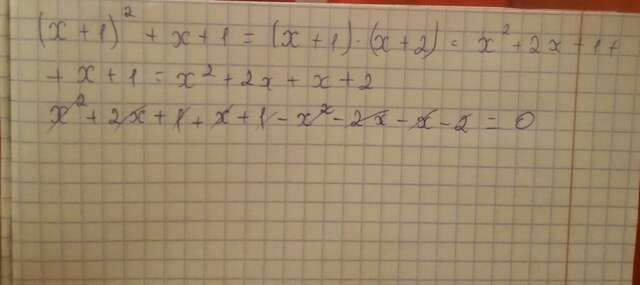 (x + 1)² + x + 1 = (x + 1) · (x + 2) = x² + 2x + 1 +
+ x + 1 = x² + 2x + x + 2
x² + 2x + 1 + x + 1 - x² - 2x - x - 2 = 0